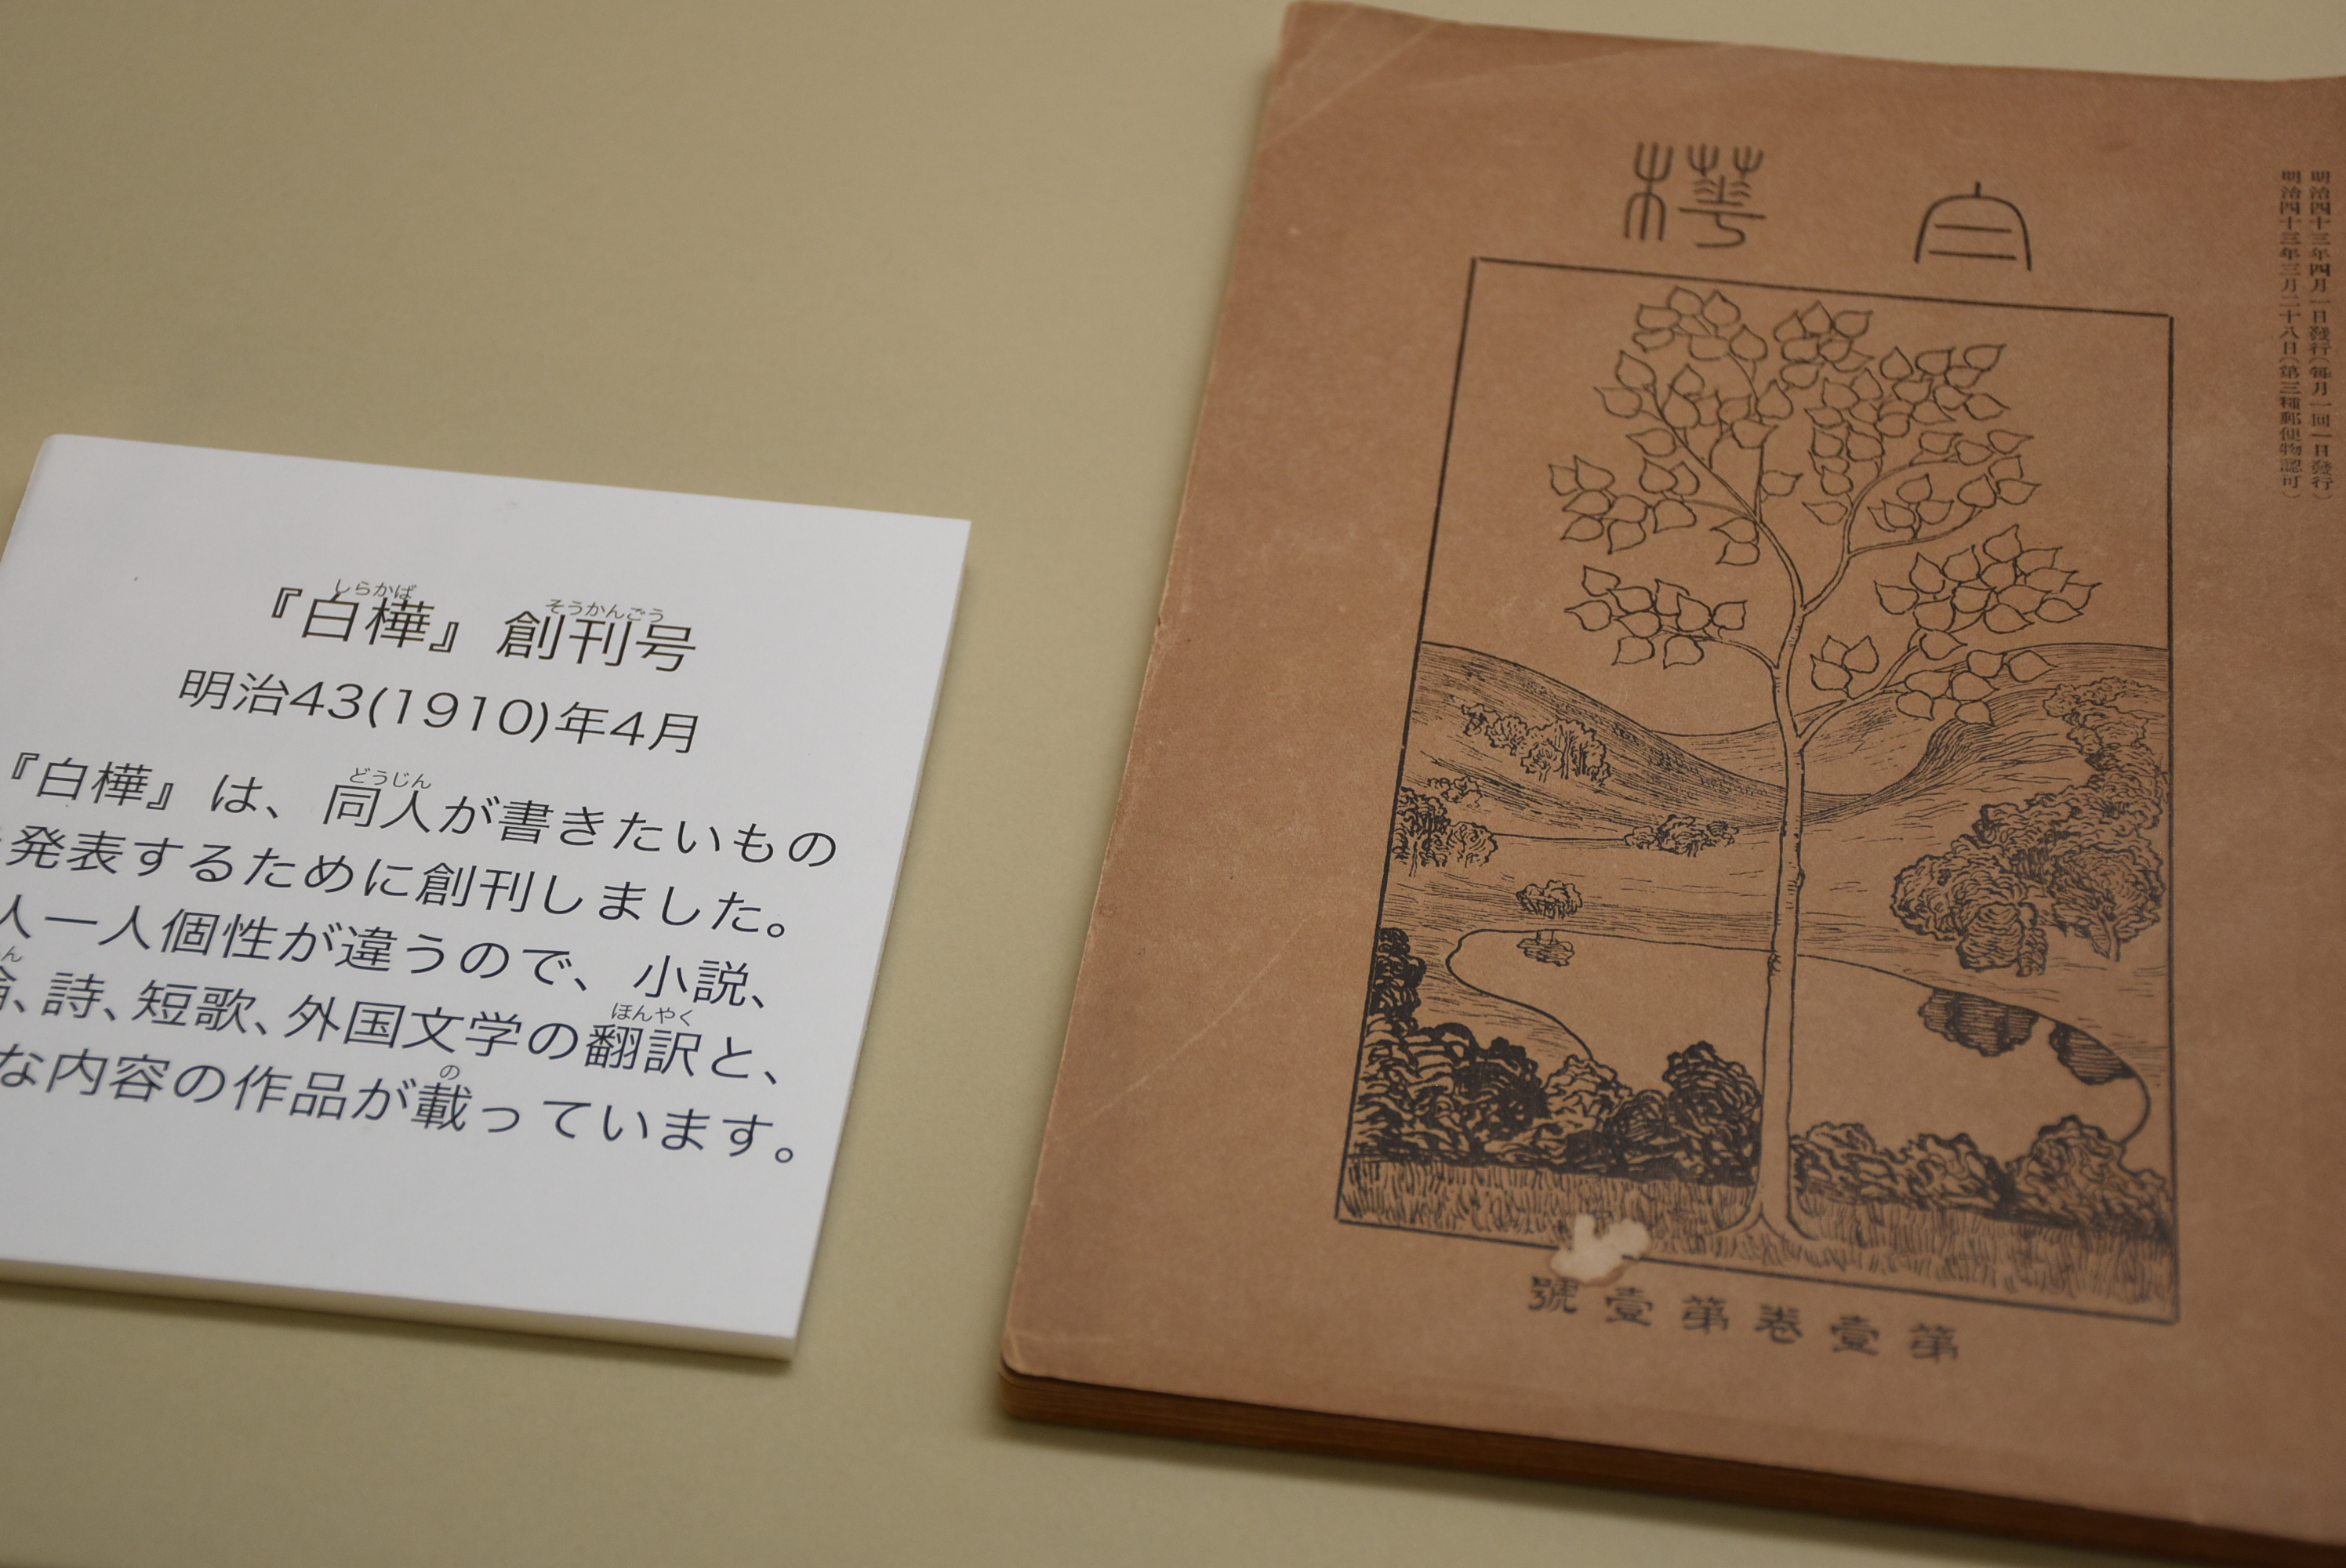 『白樺』創刊号
しらかば そうかんごう
明治43(1910)年4月
『白樺』は、同人が書きたいもの
どうじん
発表するために創刊しました。
人一人個性が違うので、小説、
、詩、短歌、外国文学の翻訳と、
ん ほんやく
な内容の作品が載っています。
の
白樺
明治四十三年四月一日發行(每月一回一日發行)
明治四十三年三月二十八日(第三種郵便物認可)
第壹卷第壹號